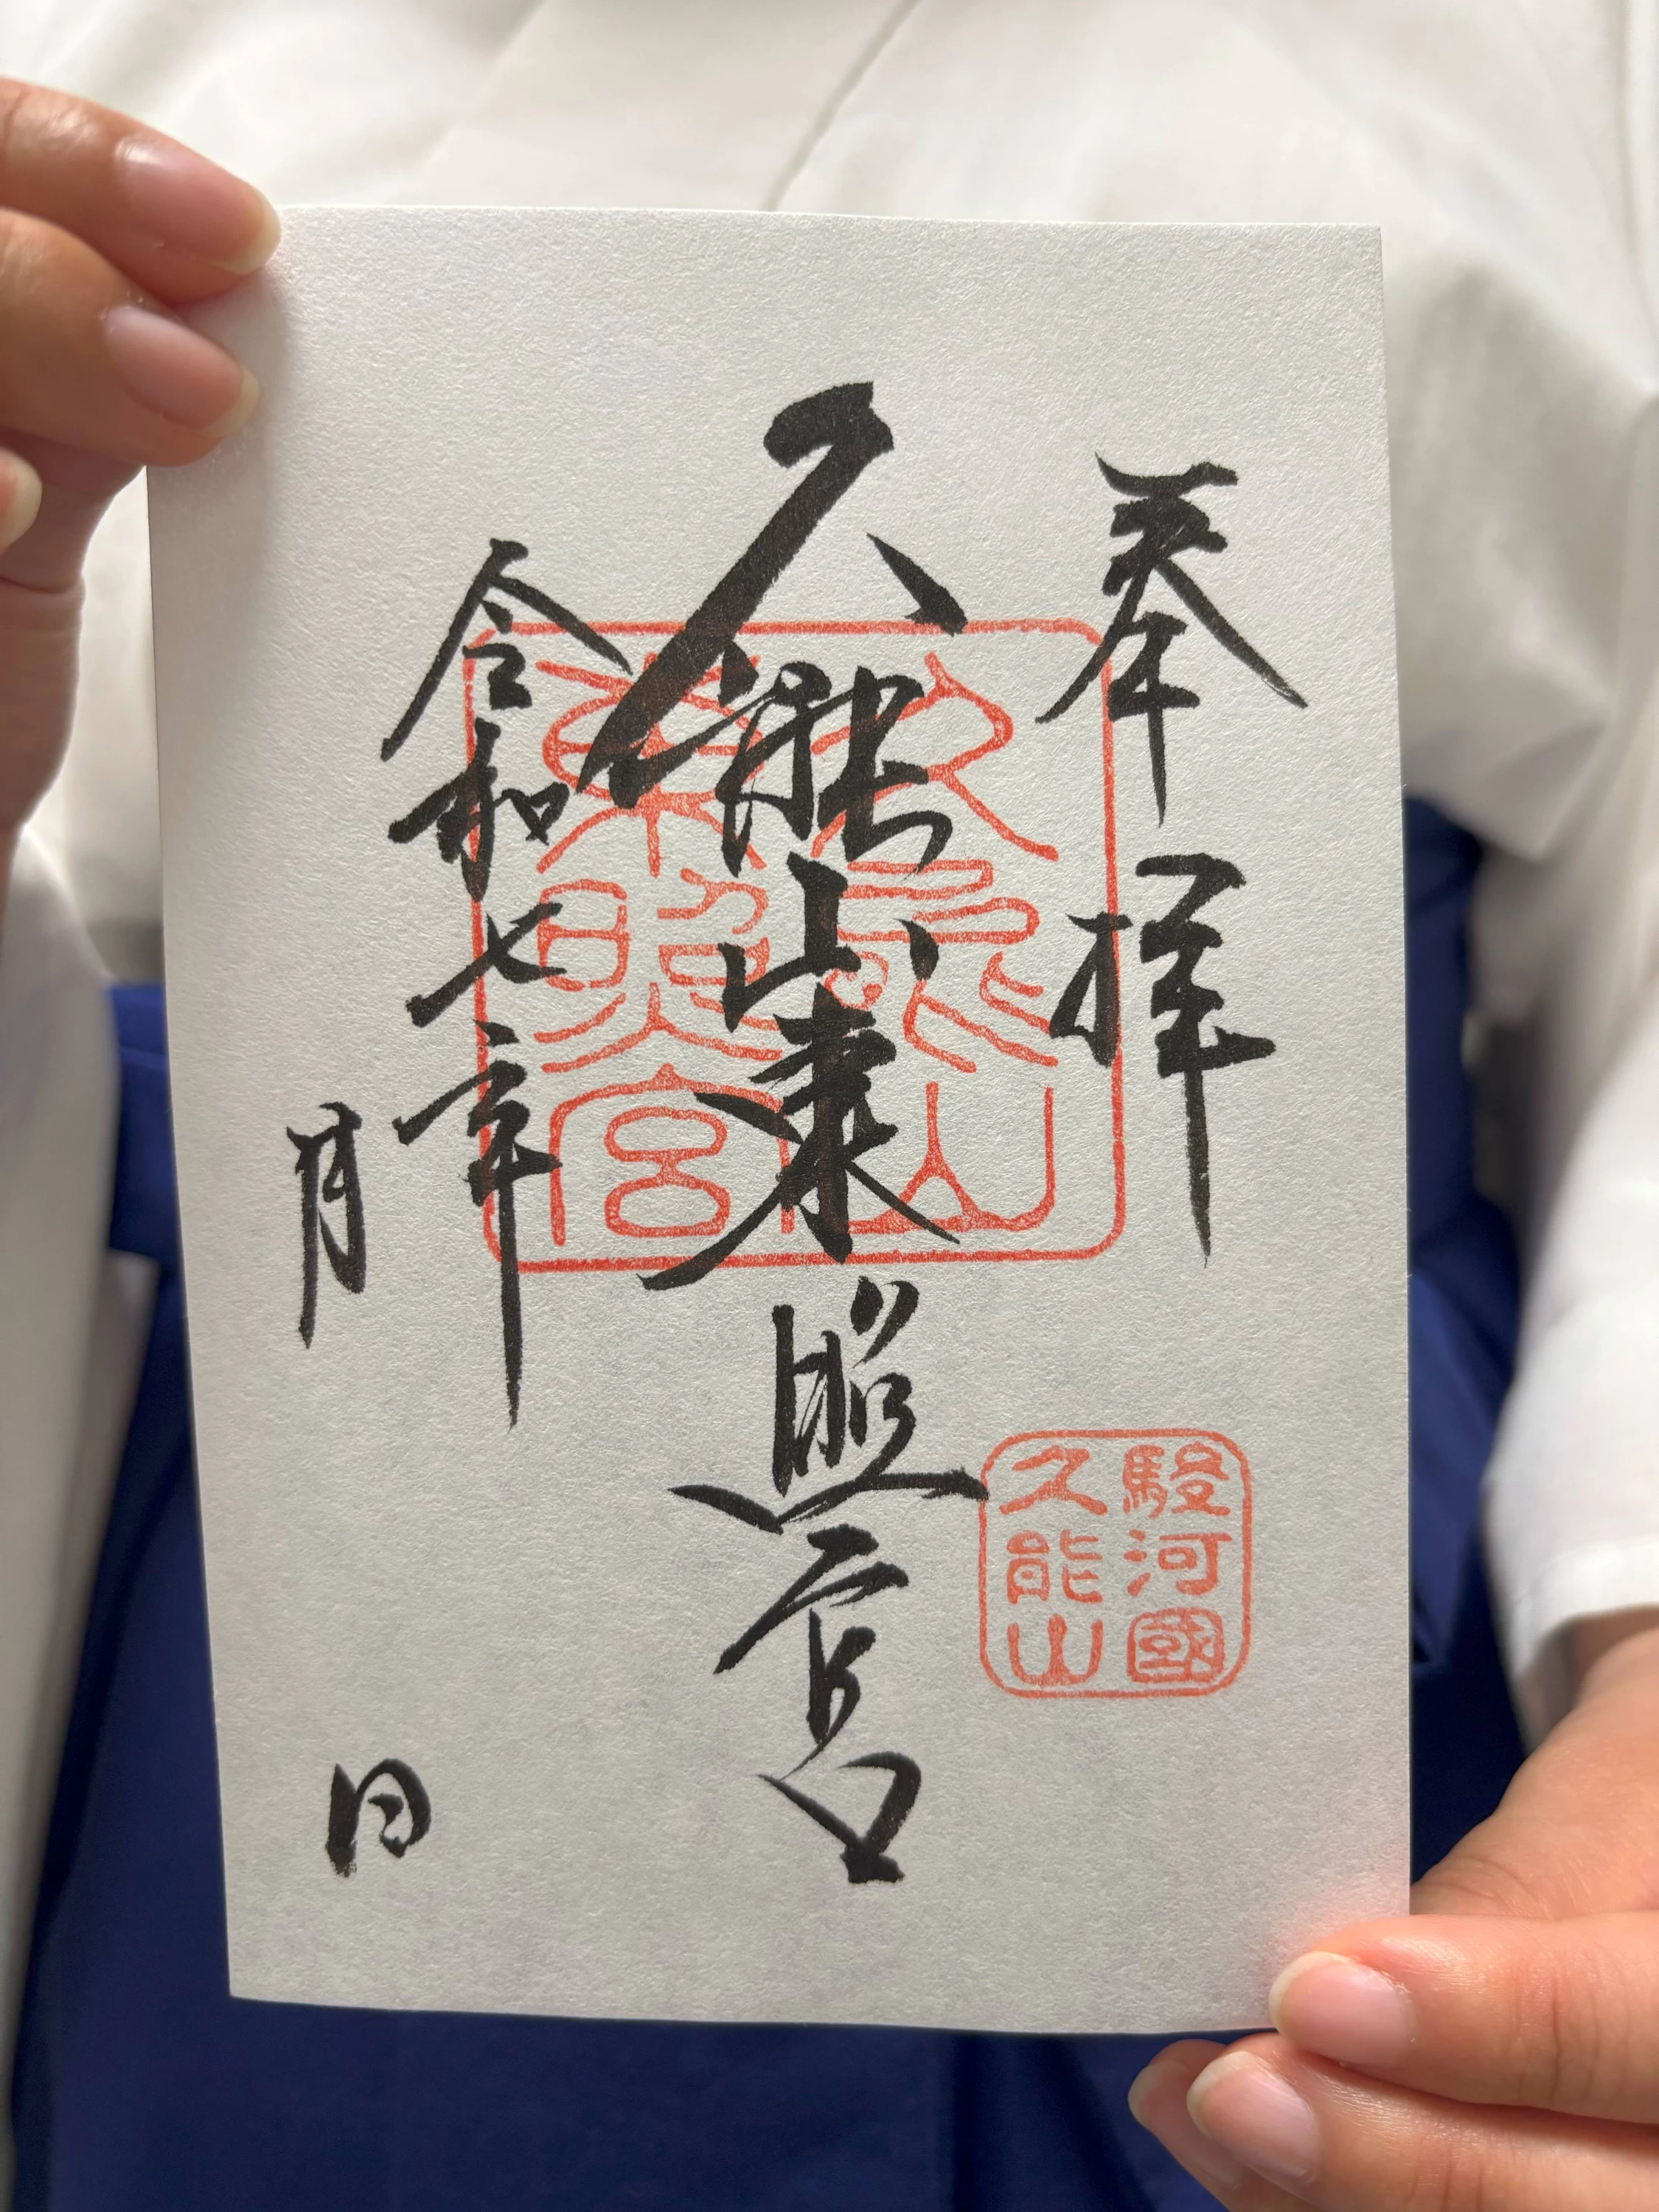 奉拝
駿河國
久能山
久能山東照宮
久能山
東照宮
令和七年
月 日